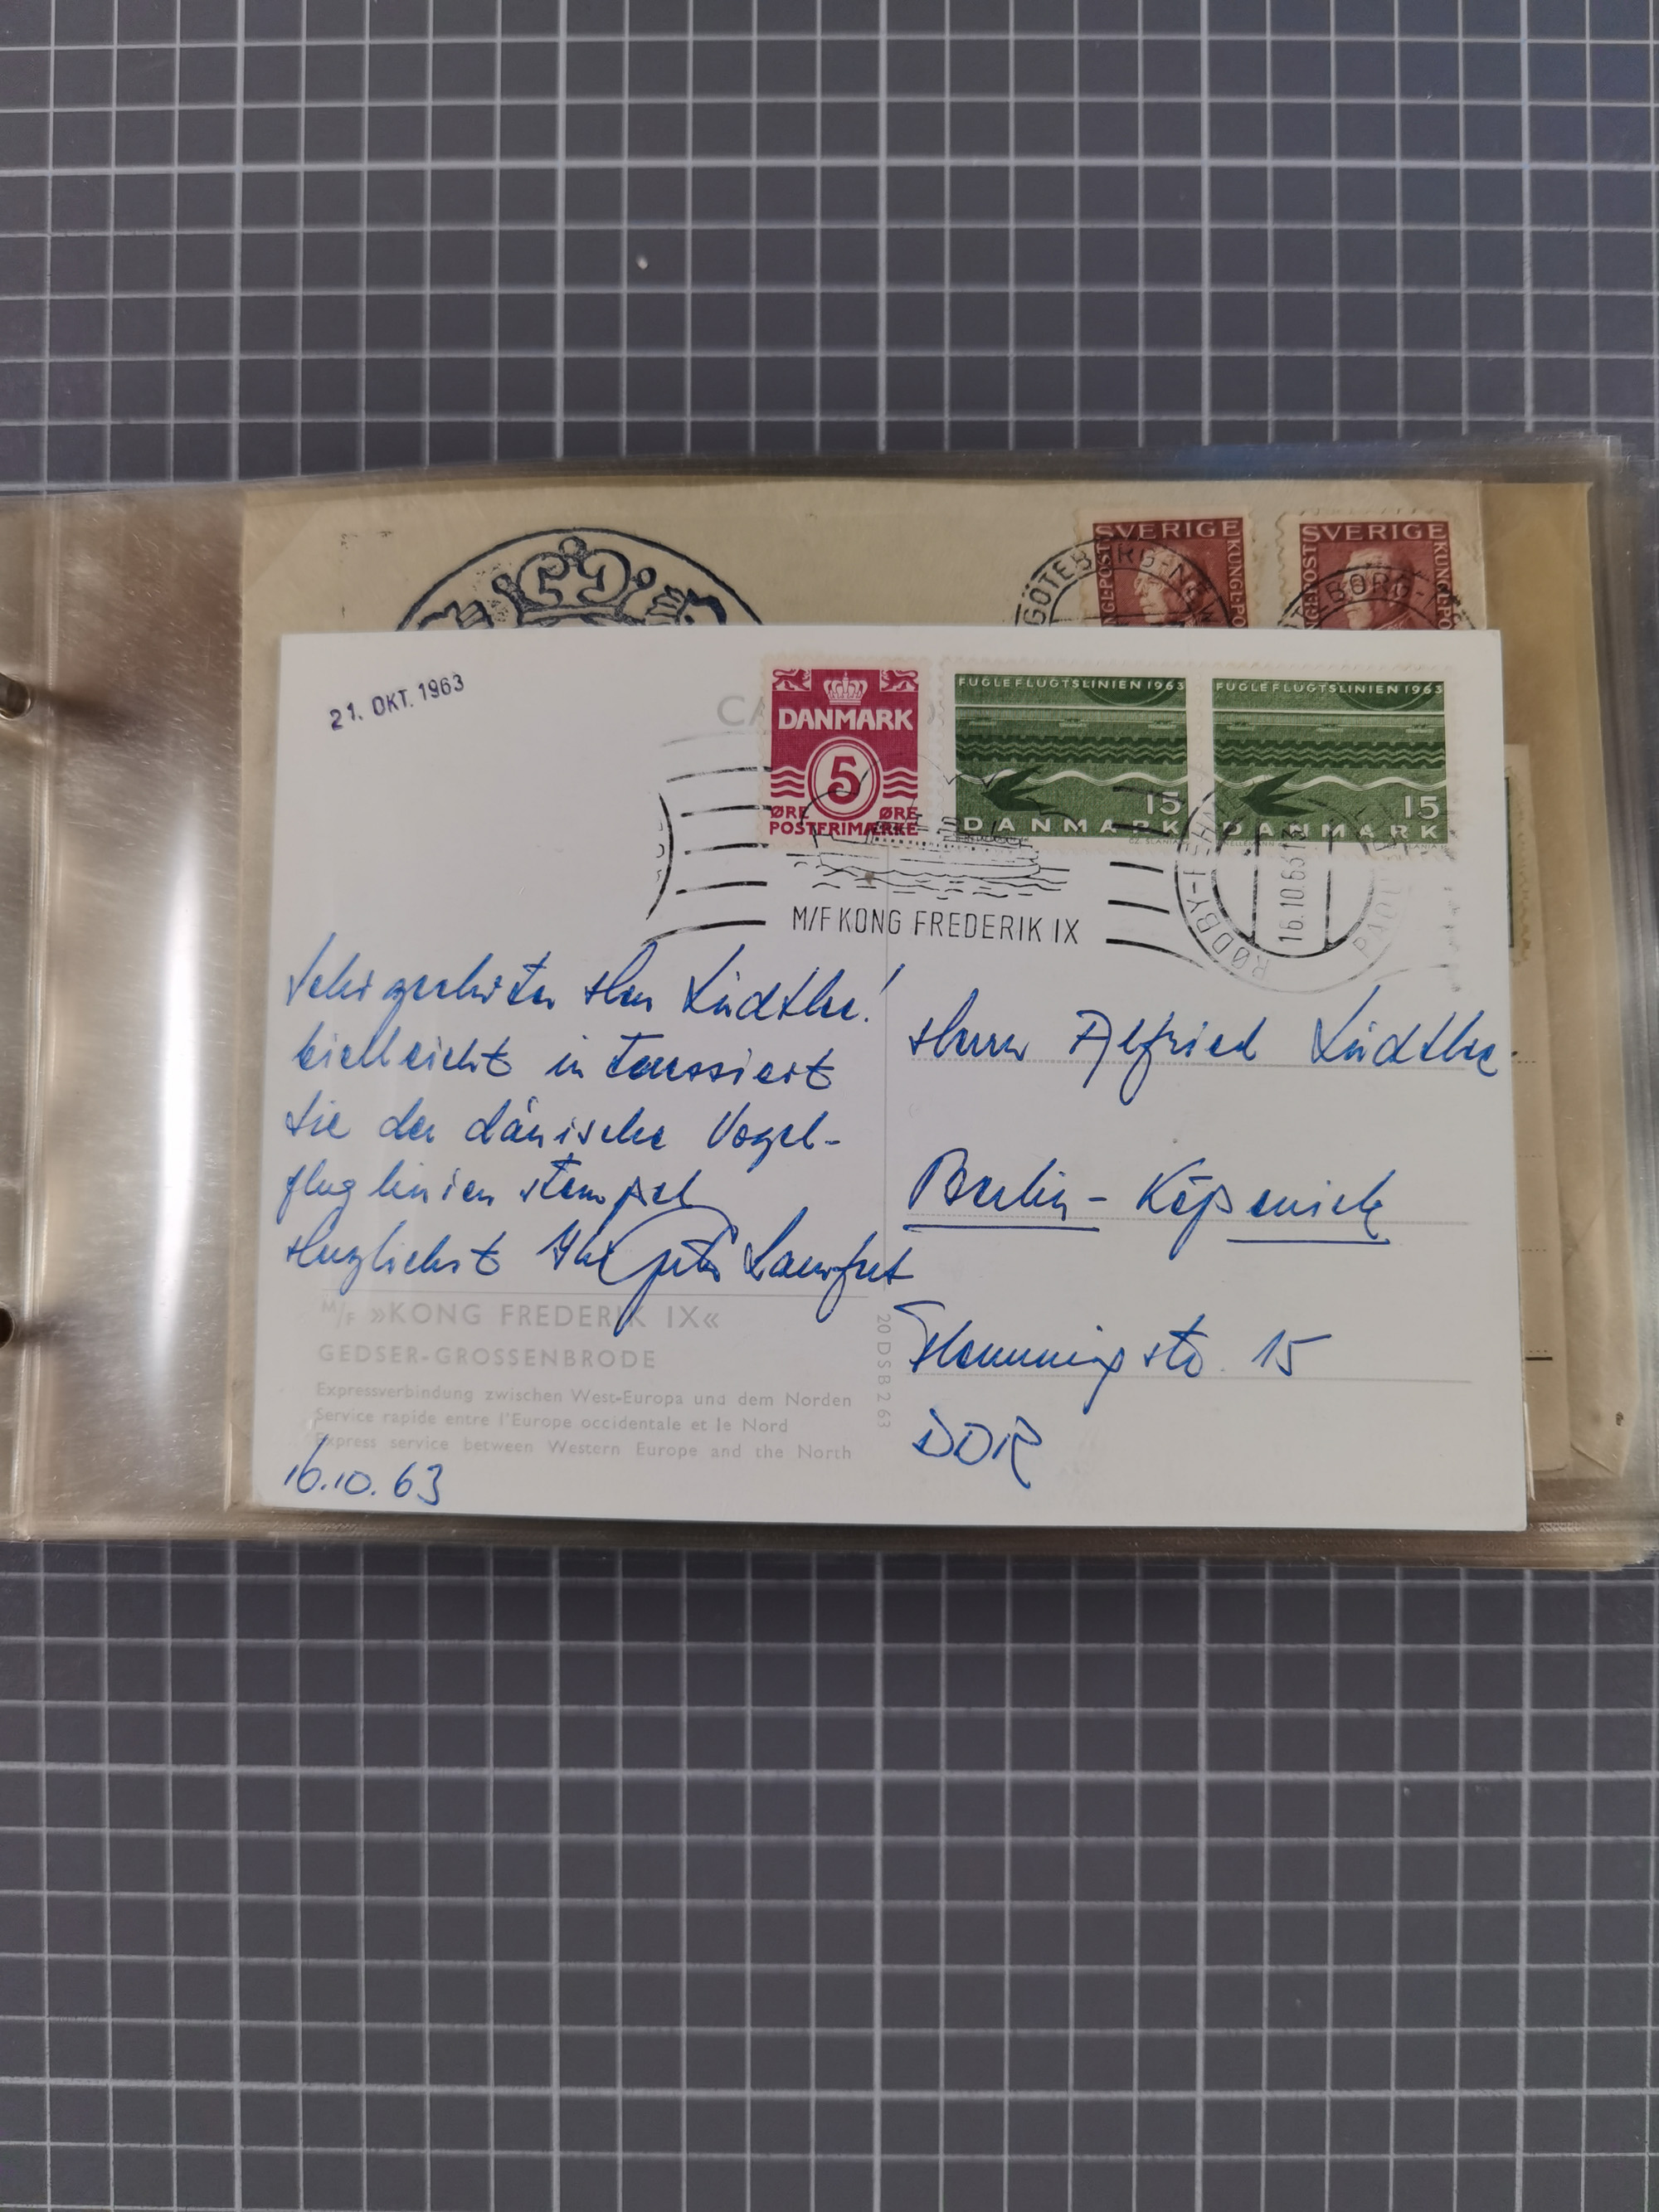 SVERIGE
KUNGL·PO
GÖTEBORG-NEW
SVERIGE
POST
TEBORG-
21. OKT. 1963
DANMARK
5
ØRE ØRE
POSTFRIMÆRKE
FUGLEFLUGTSLINIEN 1963
15
DANMARK
FUGLEFLUGTSLINIEN 1963
15
DANMARK
M/F KONG FREDERIK IX
RØDBY-F
16.10.63
Sehr geehrter Herr Lüdtke!
vielleicht interessiert
Sie der dänische Vogel-
fluglinienstempel
Herzlichst Ihr
Herrn Alfried Lüdtke
Berlin - Köpenick
Flemmingstr. 15
DDR
M/F »KONG FREDERIK IX«
GEDSER-GROSSENBRODE
Expressverbindung zwischen West-Europa und dem Norden
Service rapide entre l'Europe occidentale et le Nord
Express service between Western Europe and the North
20 DSB 2 63
16.10.63